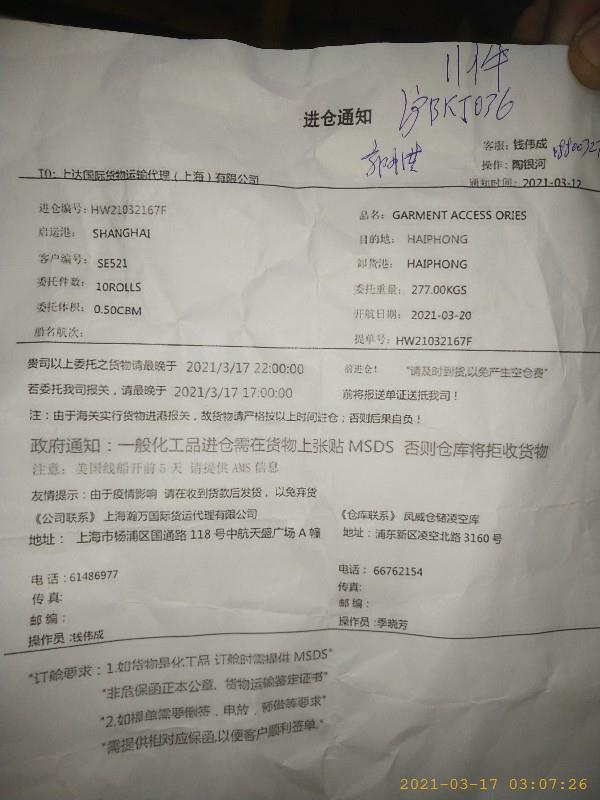 11件
沪BKJ036
进仓通知
客服：钱伟成
操作：陶银河
TO：上达国际货物运输代理（上海）有限公司
通知时间：2021-03-12
进仓编号：HW21032167F
品名：GARMENT ACCESS ORIES
启运港：SHANGHAI
目的地：HAIPHONG
客户编号：SE521
卸货港：HAIPHONG
委托件数：10ROLLS
委托重量：277.00KGS
委托体积：0.50CBM
开航日期：2021-03-20
船名航次：
提单号：HW21032167F
贵司以上委托之货物请最晚于 2021/3/17 22:00:00 前进仓！ "请及时到货,以免产生空仓费"
若委托我司报关，请最晚于 2021/3/17 17:00:00 前将报送单证送抵我司！
注：由于海关实行货物进港报关，故货物请严格按以上时间进仓；否则后果自负！
政府通知：一般化工品进仓需在货物上张贴 MSDS 否则仓库将拒收货物
注意：美国线船开前 5 天 请提供 AMS 信息
友情提示：由于疫情影响 请在收到货款后发货，以免弃货
《公司联系》上海瀚万国际货运代理有限公司
《仓库联系》凤威仓储凌空库
地址：上海市杨浦区国通路 118 号中航天盛广场 A 幢
地址：浦东新区凌空北路 3160 号
电话：61486977
电话：66762154
传真:
传真:
邮编：
邮编：
操作员:钱伟成
操作员:季晓芳
"订舱要求：1.如货物是化工品 订舱时需提供 MSDS"
"非危保函正本公章，货物运输鉴定证书"
"2.如提单需要倒签，电放，预借等要求"
"需提供相对应保函,以便客户顺利签单."
2021-03-17 03:07:26